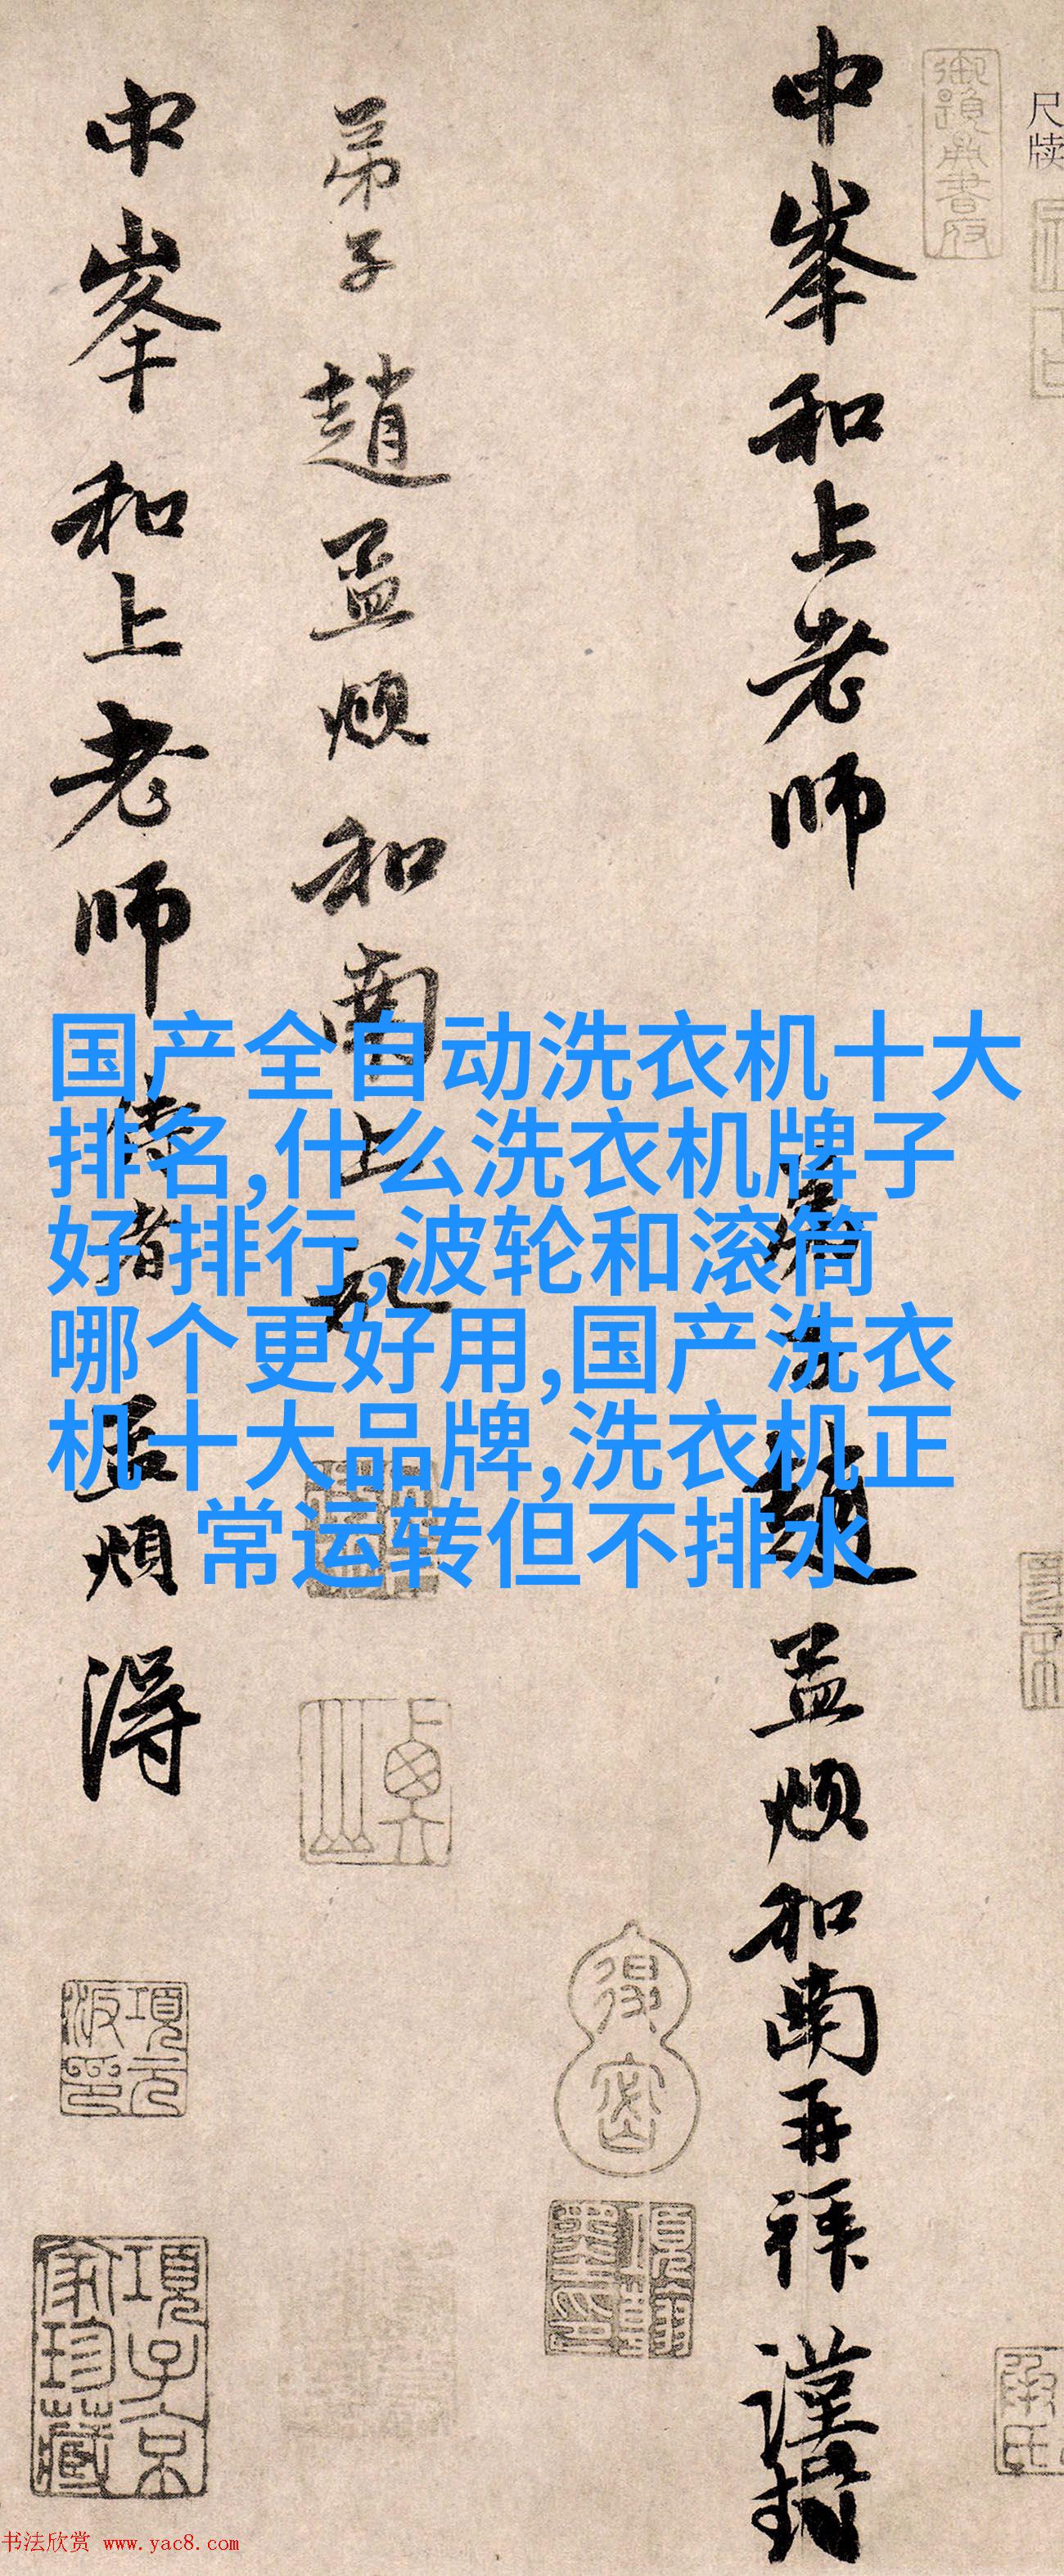 尺牍
中峯和上老师
趙孟頫和南再拜謹封
弟子趙孟頫和南上記
中峯和上老師侍者孟頫得
国产全自动洗衣机十大
排名,什么洗衣机牌子
好 排行,波轮和滚筒
哪个更好用,国产洗衣
机十大品牌,洗衣机正
常运转但不排水
項元汴印
項子京家珍藏
书法欣赏 www.yac8.com